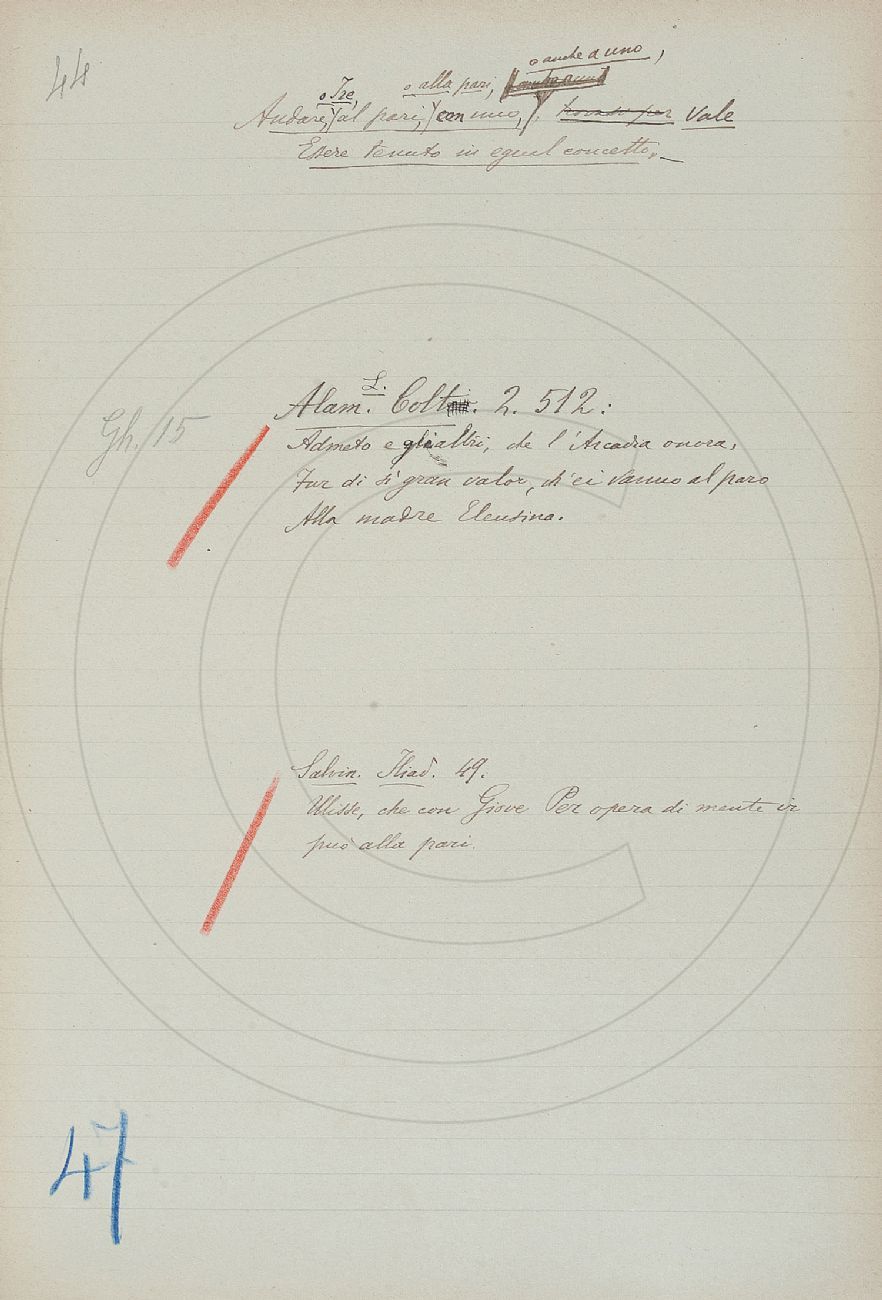 44
o anche a uno,
o Ire, o alla pari,
Andare, al pari, con uno, trovasi per Vale
Essere tenuto in egual concetto.
L.
Alam. Colt. 2. 512:
Gh. 15
Admeto e gli altri, che l'Arcadia onora,
Fur di sì gran valor, ch'ei vanno al paro
Alla madre Eleusina.
Salvin. Iliad. 49.
Ulisse, che con Giove Per opera di mente ir
può alla pari.
47